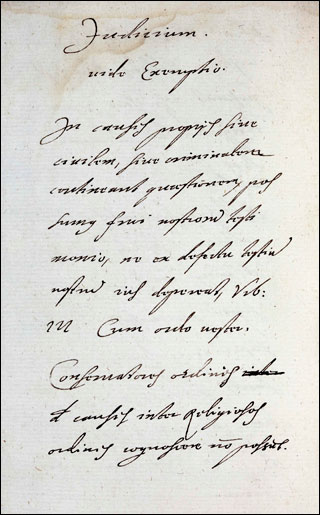 Judicium.
vide Exemptio.
In causis propriis sive
civilem, sive criminalem
contineant quæstionem, pos
sumus frui nostrorum testi
monio, ne ex defectu testiũ
nostrũ ius depereat, Urb:
Cum ordo noster.
Conservatores ordinis
d causis inter Religiosos
ordinis cognoscere nõ possũt.